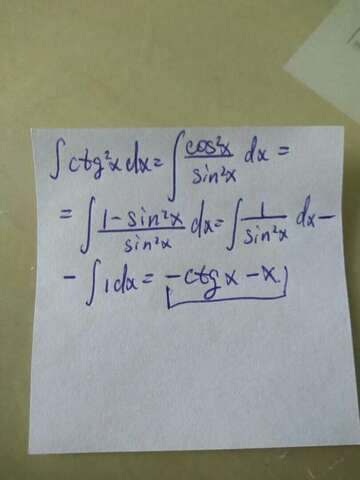 ∫ctg²x dx = ∫cos²x/sin²x dx =
= ∫(1-sin²x)/sin²x dx = ∫1/sin²x dx -
- ∫1 dx = -ctg x - x